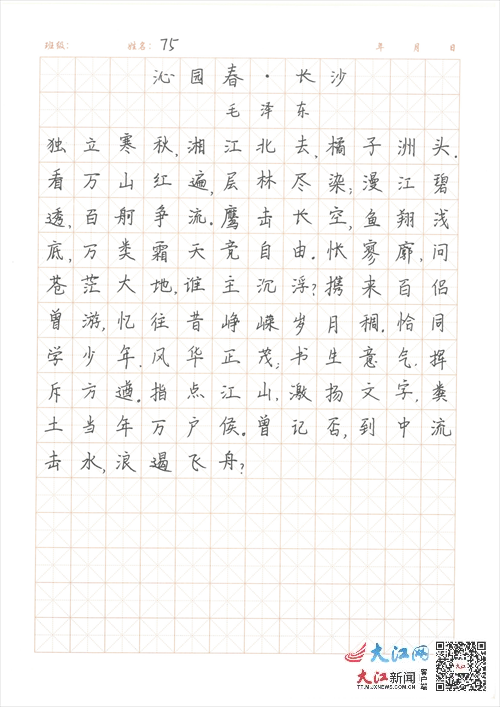 班级: 姓名: 75 年 月 日
沁园春·长沙
毛泽东
独立寒秋,湘江北去,橘子洲头.
看万山红遍,层林尽染;漫江碧
透,百舸争流.鹰击长空,鱼翔浅
底,万类霜天竞自由.怅寥廓,问
苍茫大地,谁主沉浮?携来百侣
曾游,忆往昔峥嵘岁月稠.恰同
学少年.风华正茂;书生意气.挥
斥方遒.指点江山,激扬文字,粪
土当年万户侯.曾记否,到中流
击水,浪遏飞舟?
大江网
大江新闻 客户端